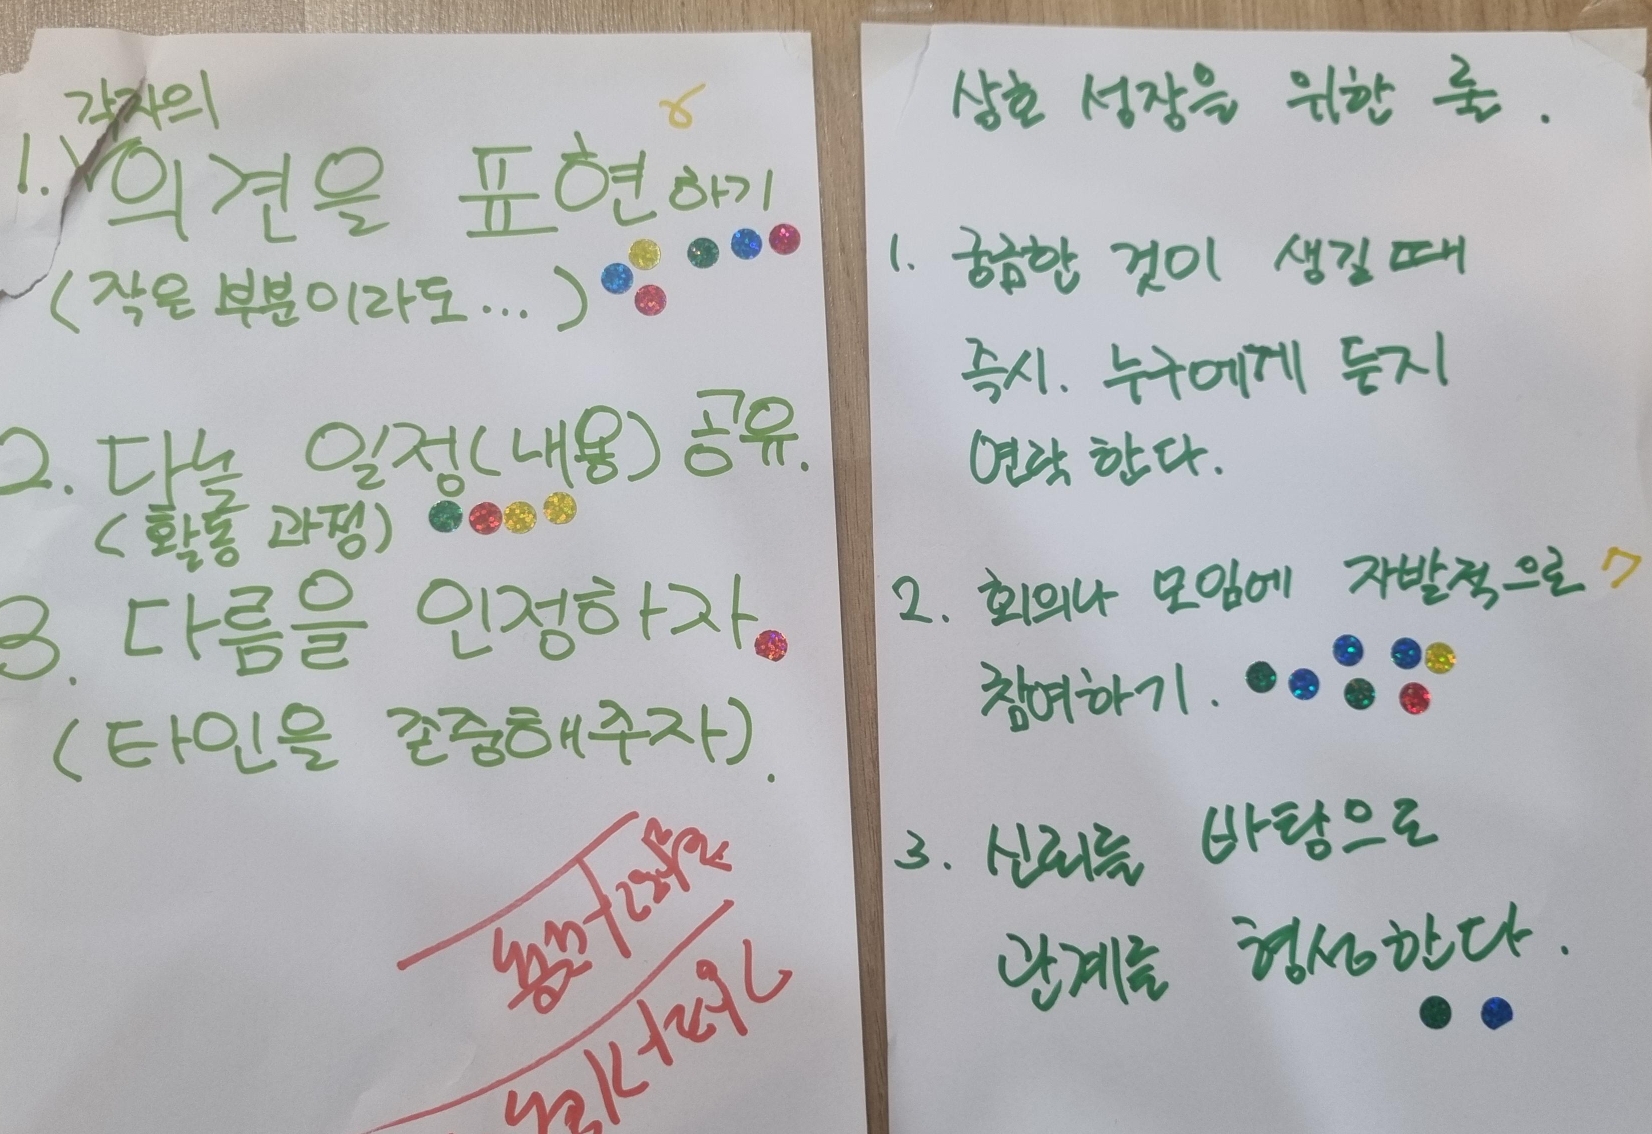 각자의
1. 의견을 표현하기
6
(작은 부분이라도...)
2. 다늘 일정(내용) 공유.
(활동 과정)
3. 다름을 인정하자.
(타인을 존중해주자).
상호 성장을 위한 룰.
1. 궁금한 것이 생길때
즉시. 누구에게 든지
연락한다.
2. 회의나 모임에 자발적으로 7
참여하기.
3. 신뢰를 바탕으로
관계를 형성한다.